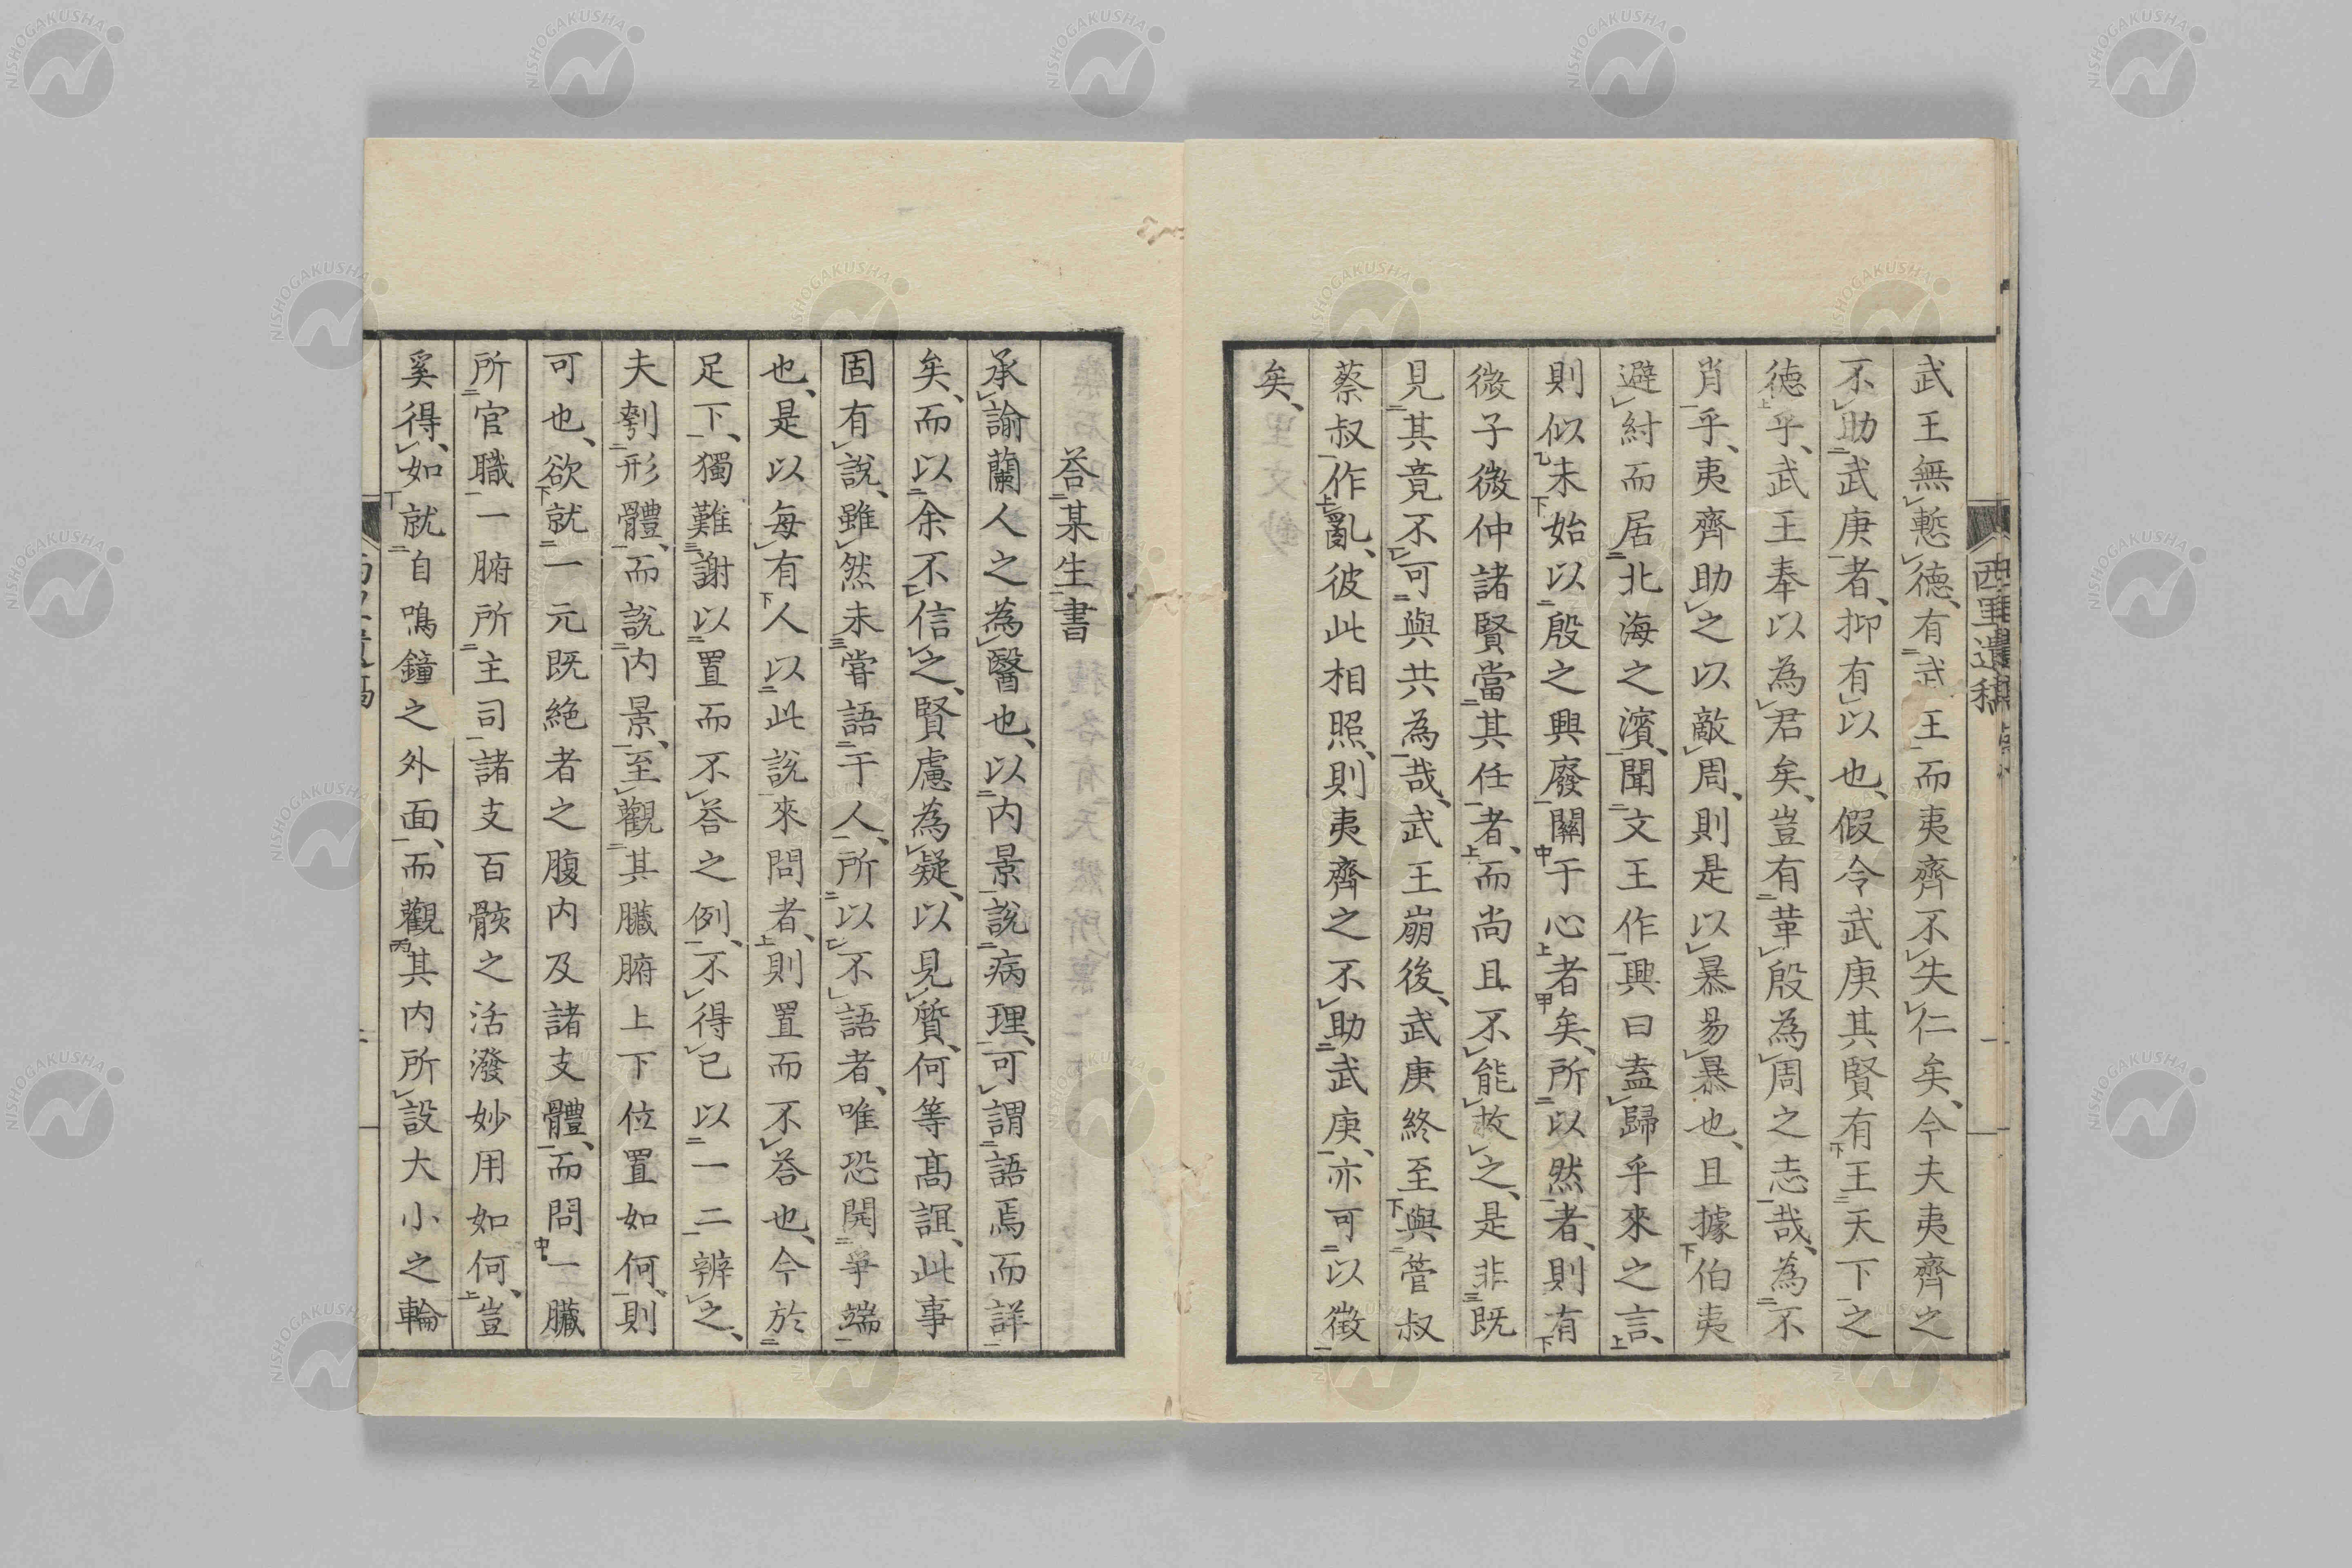 武王無慙德、有武王而夷齊不失仁矣、今夫夷齊之
不助武庚者、抑有以也、假令武庚其賢有王天下之
德乎、武王奉以為君矣、豈有革殷為周之志哉、為不
肖乎、夷齊助之以敵周、則是以暴易暴也、且據伯夷
避紂而居北海之濱、聞文王作興曰盍歸乎來之言、
則似未始以殷之興廢關于心者矣、所以然者、則有
微子微仲諸賢當其任者、而尚且不能救之、是非既
見其竟不可與共為哉、武王崩後、武庚終至與管叔
蔡叔作亂、彼此相照、則夷齊之不助武庚、亦可以徵
矣、
答某生書
承諭蘭人之為醫也、以内景說病理、可謂語焉而詳
矣、而以余不信之、賢慮為疑、以見質、何等高誼、此事
固有說、雖然未嘗語于人、所以不語者、唯恐開爭端
也、是以每有人以此說來問者、則置而不答也、今於
足下、獨難謝以置而不答之例、不得已以一二辨之、
夫刳形體、而說内景、至觀其臟腑上下位置如何、則
可也、欲就一元既絕者之腹内及諸支體、而問一臟
所官職一腑所主司諸支百骸之活潑妙用如何、豈
奚得、如就自鳴鐘之外面、而觀其内所設大小之輪
西里遺稿
NISHOGAKUSHA